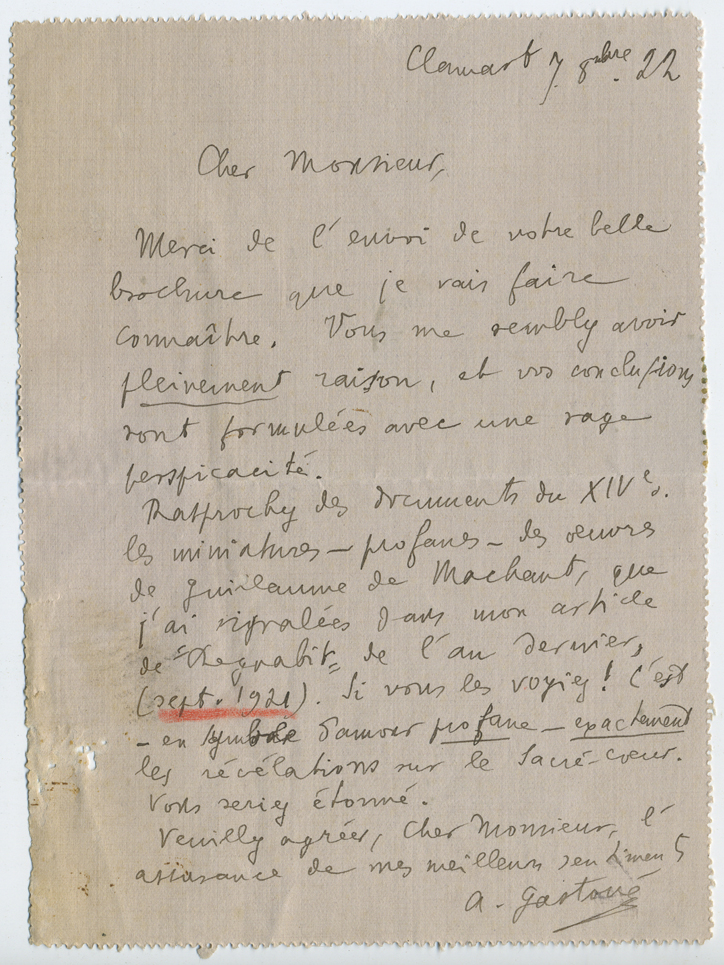 Clamart 7. 8mbre. 22
Cher Monsieur,
Merci de l'envoi de votre belle
brochure que je vais faire
connaître. Vous me semblez avoir
pleinement raison, et vos conclusions
sont formulées avec une sage
perspicacité.
Rapprochez des documents du XIVe s.
les miniatures – profanes – des œuvres
de Guillaume de Machaut, que
j'ai signalées dans mon article
de "Regnabit" de l'an dernier,
(sept. 1921). Si vous les voyiez! C'est
– en symbole d'amour profane – exactement
les révélations sur le Sacré-cœur.
Vous seriez étonné.
Veuillez agréer, Cher Monsieur, l'
assurance de mes meilleurs sentiments
A. Gastoué